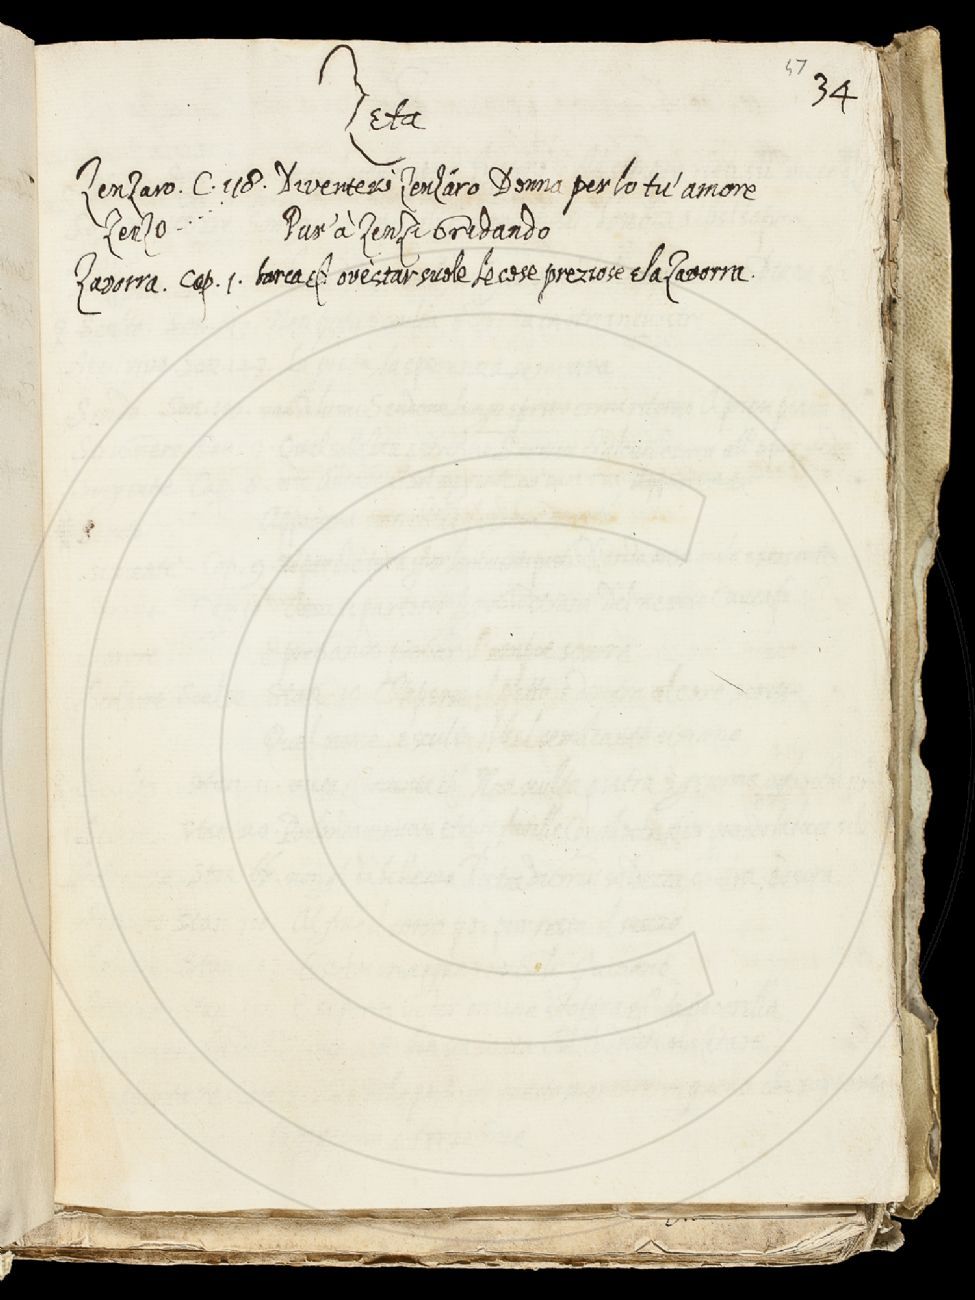 47
34
Zeta
Zenzaro. C. 118. Diventerò Zenzáro Donna per lo tu' amore
Zenzo - Pur' à Zenzi Gridando
Zavorra. Cap. 1. barca ove star suole Le cose preziose e la Zavorra.